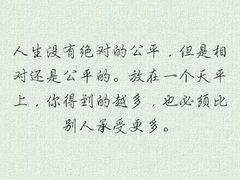 人生没有绝对的公平，但是相
对还是公平的。放在一个天平
上，你得到的越多，也必须比
别人承受更多。